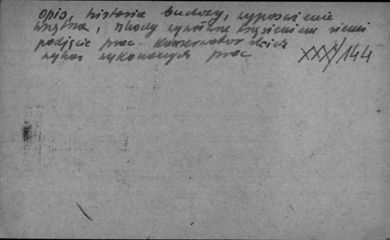 opis, historia budowy, wyposażenie
wnętrza, szkody wywołane trzęsieniem ziemi
podjęcie prac konserwatorskich
wykaz wykonanych prac XXX/144